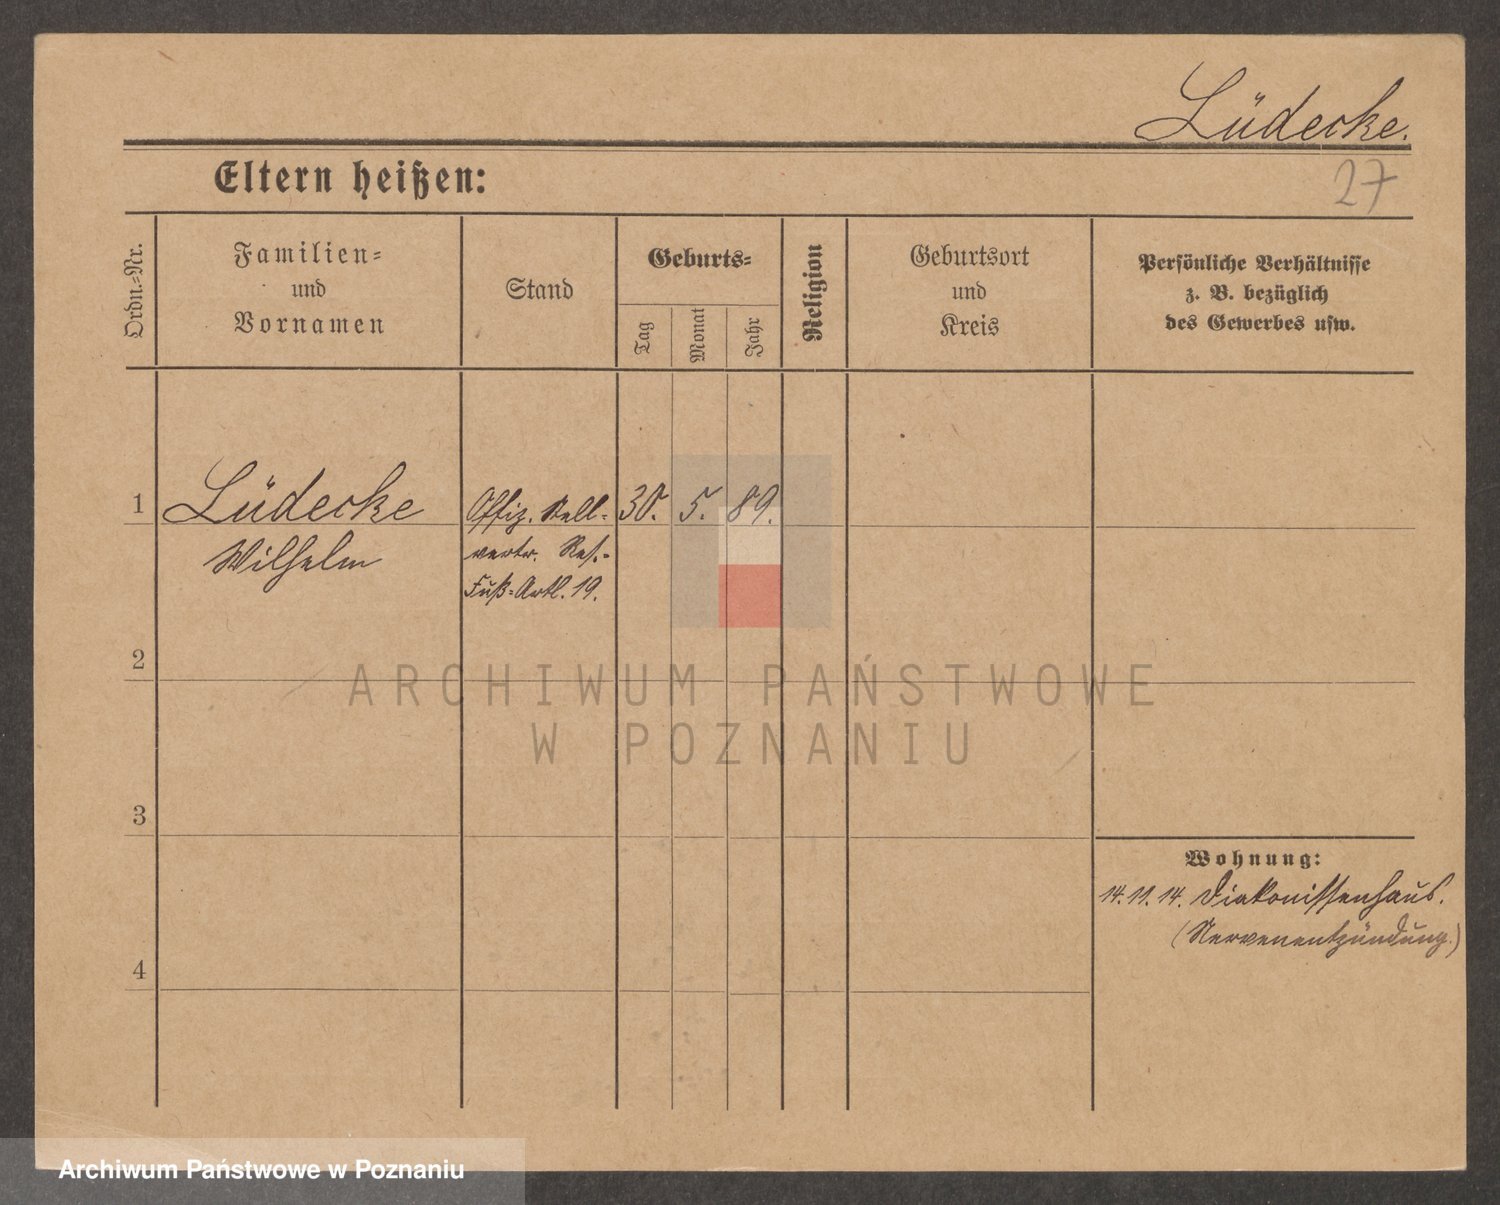 Lüdecke.
Eltern heißen:
27
Ordn.-Nr.
Familien-
und
Vornamen
Stand
Geburts-
Tag
Monat
Jahr
Religion
Geburtsort
und
Kreis
Persönliche Verhältnisse
z. B. bezüglich
des Gewerbes usw.
1 Lüdecke Offiz. Stell- 30. 5. 89.
Wilhelm vertr. Res.-
Fuß-Artl. 19.
2
ARCHIWUM PAŃSTWOWE
W POZNANIU
3
Wohnung:
14. 11. 14. Diakonissenhaus.
(Nervenentzündung.)
4
Archiwum Państwowe w Poznaniu